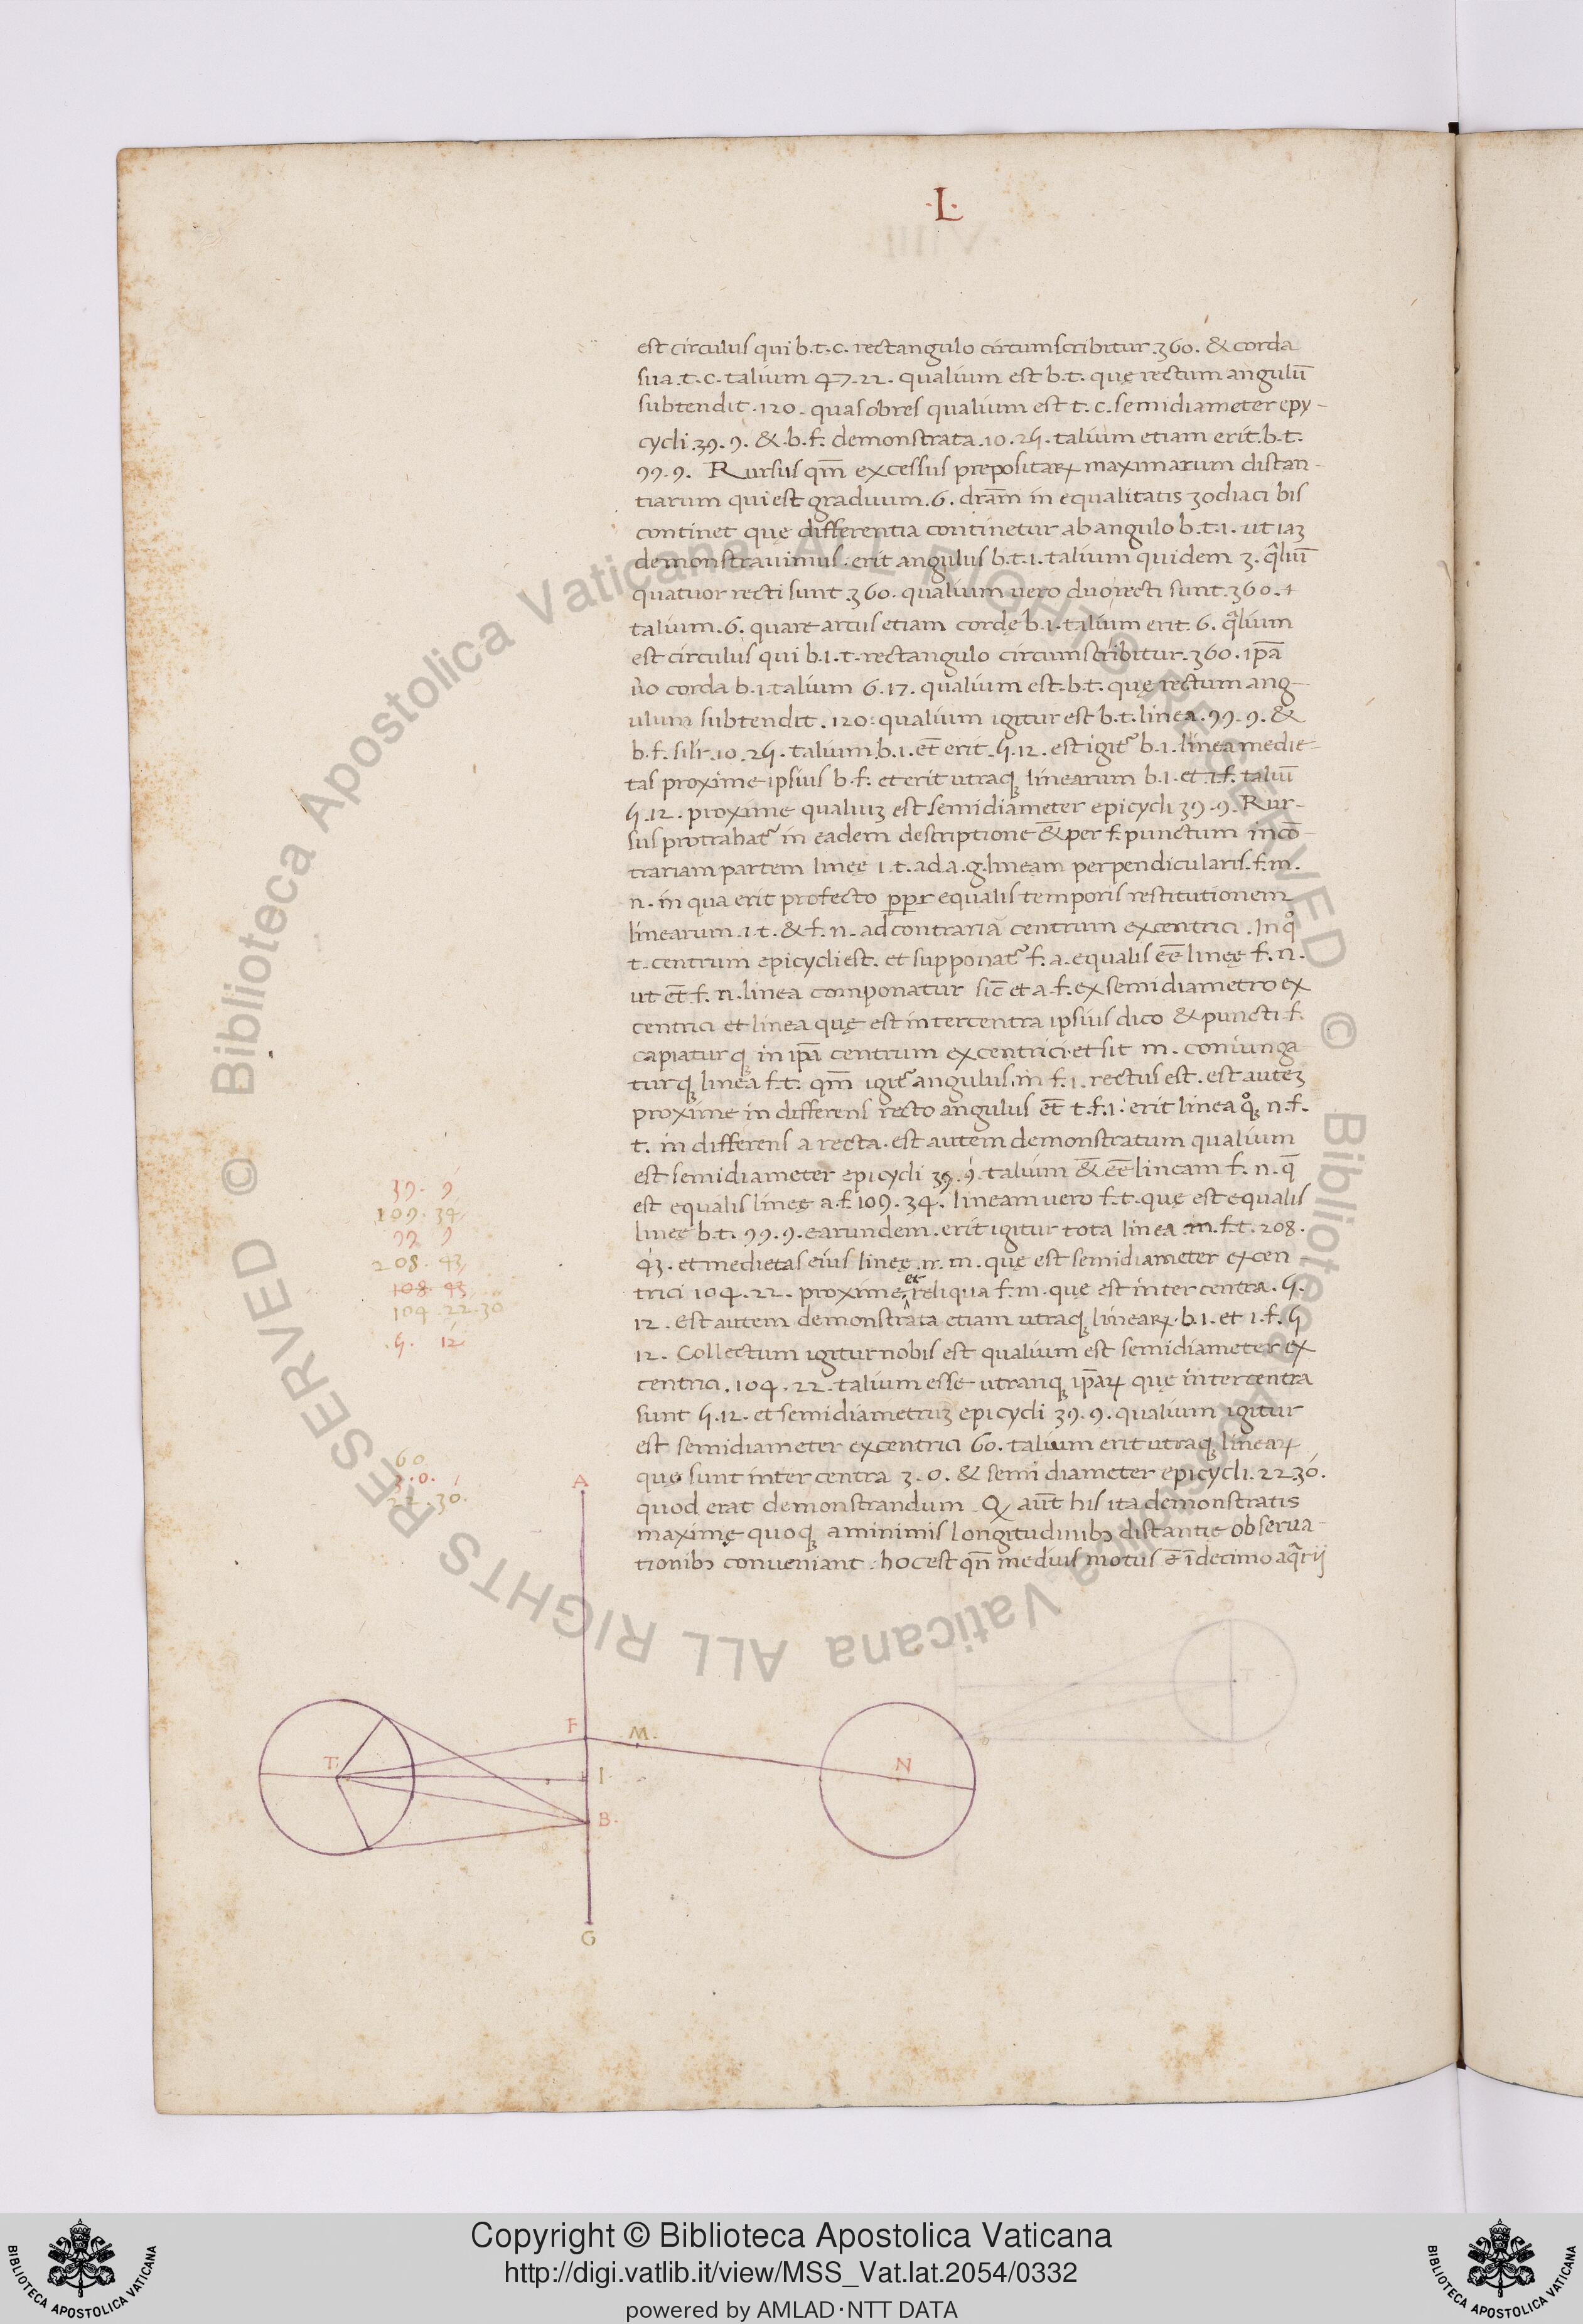 ·L·
est circulus qui b.t.c. rectangulo circumscribitur .360. & corda
sua .t.c. talium 47.22. qualium est b.t. quę rectum angulū
subtendit .120. quasobres qualium est t.c. semidiameter epy-
cycli .39.9. & .b.f. demonstrata .10.25. talium etiam erit .b.t.
99.9. Rursus qm̄ excessus prepositaꝝ maximarum distan-
tiarum qui est graduum .6. dr̄am in equalitatis zodiaci bis
continet quę differentia continetur ab angulo b.t.i. ut iaꝫ
demonstravimus. erit angulus b.t.i. talium quidem 3. q̄liū
quatuor recti sunt .360. qualium vero duo recti sunt .360.
talium .6. quare arcus etiam cordę b.i. talium erit .6. q̄lium
est circulus qui b.i.t. rectangulo circumscribitur .360. ip̄a
ŭo corda b.i. talium 6.17. qualium est .b.t. quę rectum ang-
ulum subtendit .120: qualium igitur est b.t. linea .99.9. &
b.f. silr .10.25. talium .b.i. et̄ erit .5.12. est igit᷑ b.i. linea medie-
tas proxime ipsius b.f. et erit utraqꝫ linearum b.i. et i.f. taliū
5.12. proxime qualiuꝫ est semidiameter epicycli 39.9. Rur-
sus protrahat᷑ in eadem descriptione & per f. punctum in cō-
trariam partem lineę i.t. ad .a.g. lineam perpendicularis .f.m.
n. in qua erit profecto ꝓpꝑ equalis temporis restitutionem
linearum .i.t. & f.n. ad contrariā centrum excentrici. In qͦ
t. centrum epicycli est. et supponat᷑ f.a. equalis eē lineę f.n.
ut et̄ f.n. linea componatur sic̄ et a.f. ex semidiametro ex
centrici et linea quę est inter centra ipsius dico & puncti .f.
capiatur qꝫ in ip̄a centrum excentrici. et sit m. coniunga
tur qꝫ linea f.t. qm̄ igit᷑ angulus in f.i. rectus est. est auteꝫ
proxime in differens recto angulus et̄ t.f.i. erit linea qͦꝫ n.f.
t. in differens a recta. est autem demonstratum qualium
est semidiameter epicycli 39.9. talium & eē lineam f.n. q̄
est equalis lineę a.f. 109.34. lineam vero f.t. quę est equalis
lineę b.t. 99.9. earundem. erit igitur tota linea .n.f.t. 208.
43. et medietas eius lineę .n.m. quę est semidiameter excen
trici 104.22. proxime et reliqua f.m. que est inter centra .5.
12. est autem demonstrata etiam utraqꝫ lineaꝝ .b.i. et i.f. 5
12. Collectum igitur nobis est qualium est semidiameter ex
centrici .104.22. talium esse utranqꝫ ip̄aꝝ quę inter centra
sunt 5.12. et semidiametruꝫ epicycli 39.9. qualium igitur
est semidiameter excentrici 60. talium erit utraqꝫ lineaꝝ
quę sunt inter centra 3.0. & semidiameter epicycli .22 30.
quod erat demonstrandum. Q aut̄ his ita demonstratis
maximę quoqꝫ a minimis longitudinibꝫ distantię observa-
tionibꝫ conveniant. hoc est qn̄ medius motus ē ī decimo aq̄rij
39. 9
109. 34
99 9
208. 43
108. 43
104. 22. 30
5. 12
60
3. 0.
22. 30.
A
F
M.
T.
I
N
B.
G
© Biblioteca Apostolica Vaticana ALL RIGHTS RESERVED © Biblioteca Apostolica Vaticana ALL RIGHTS RESERVED
Copyright © Biblioteca Apostolica Vaticana
http://digi.vatlib.it/view/MSS_Vat.lat.2054/0332
powered by AMLAD·NTT DATA
BIBLIOTECA APOSTOLICA VATICANA
BIBLIOTECA APOSTOLICA VATICANA